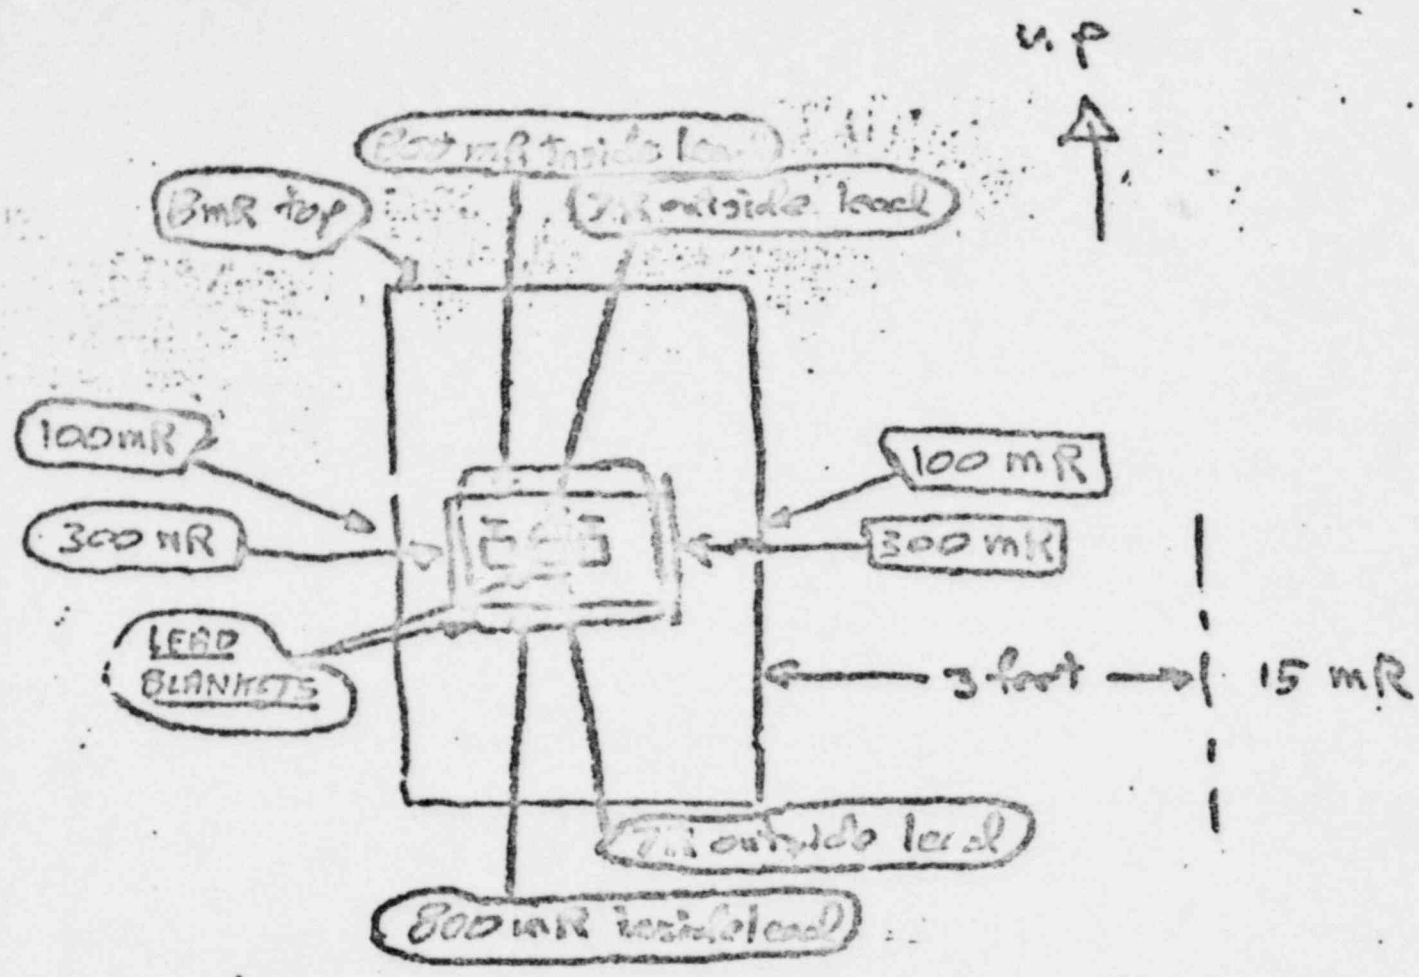 up
800 mR inside lead
outside lead
8mR top
100mR
100 mR
300 MR
300 mR
LEAD
BLANKETS
3 foot
15 mR
outside lead
800 mR inside lead